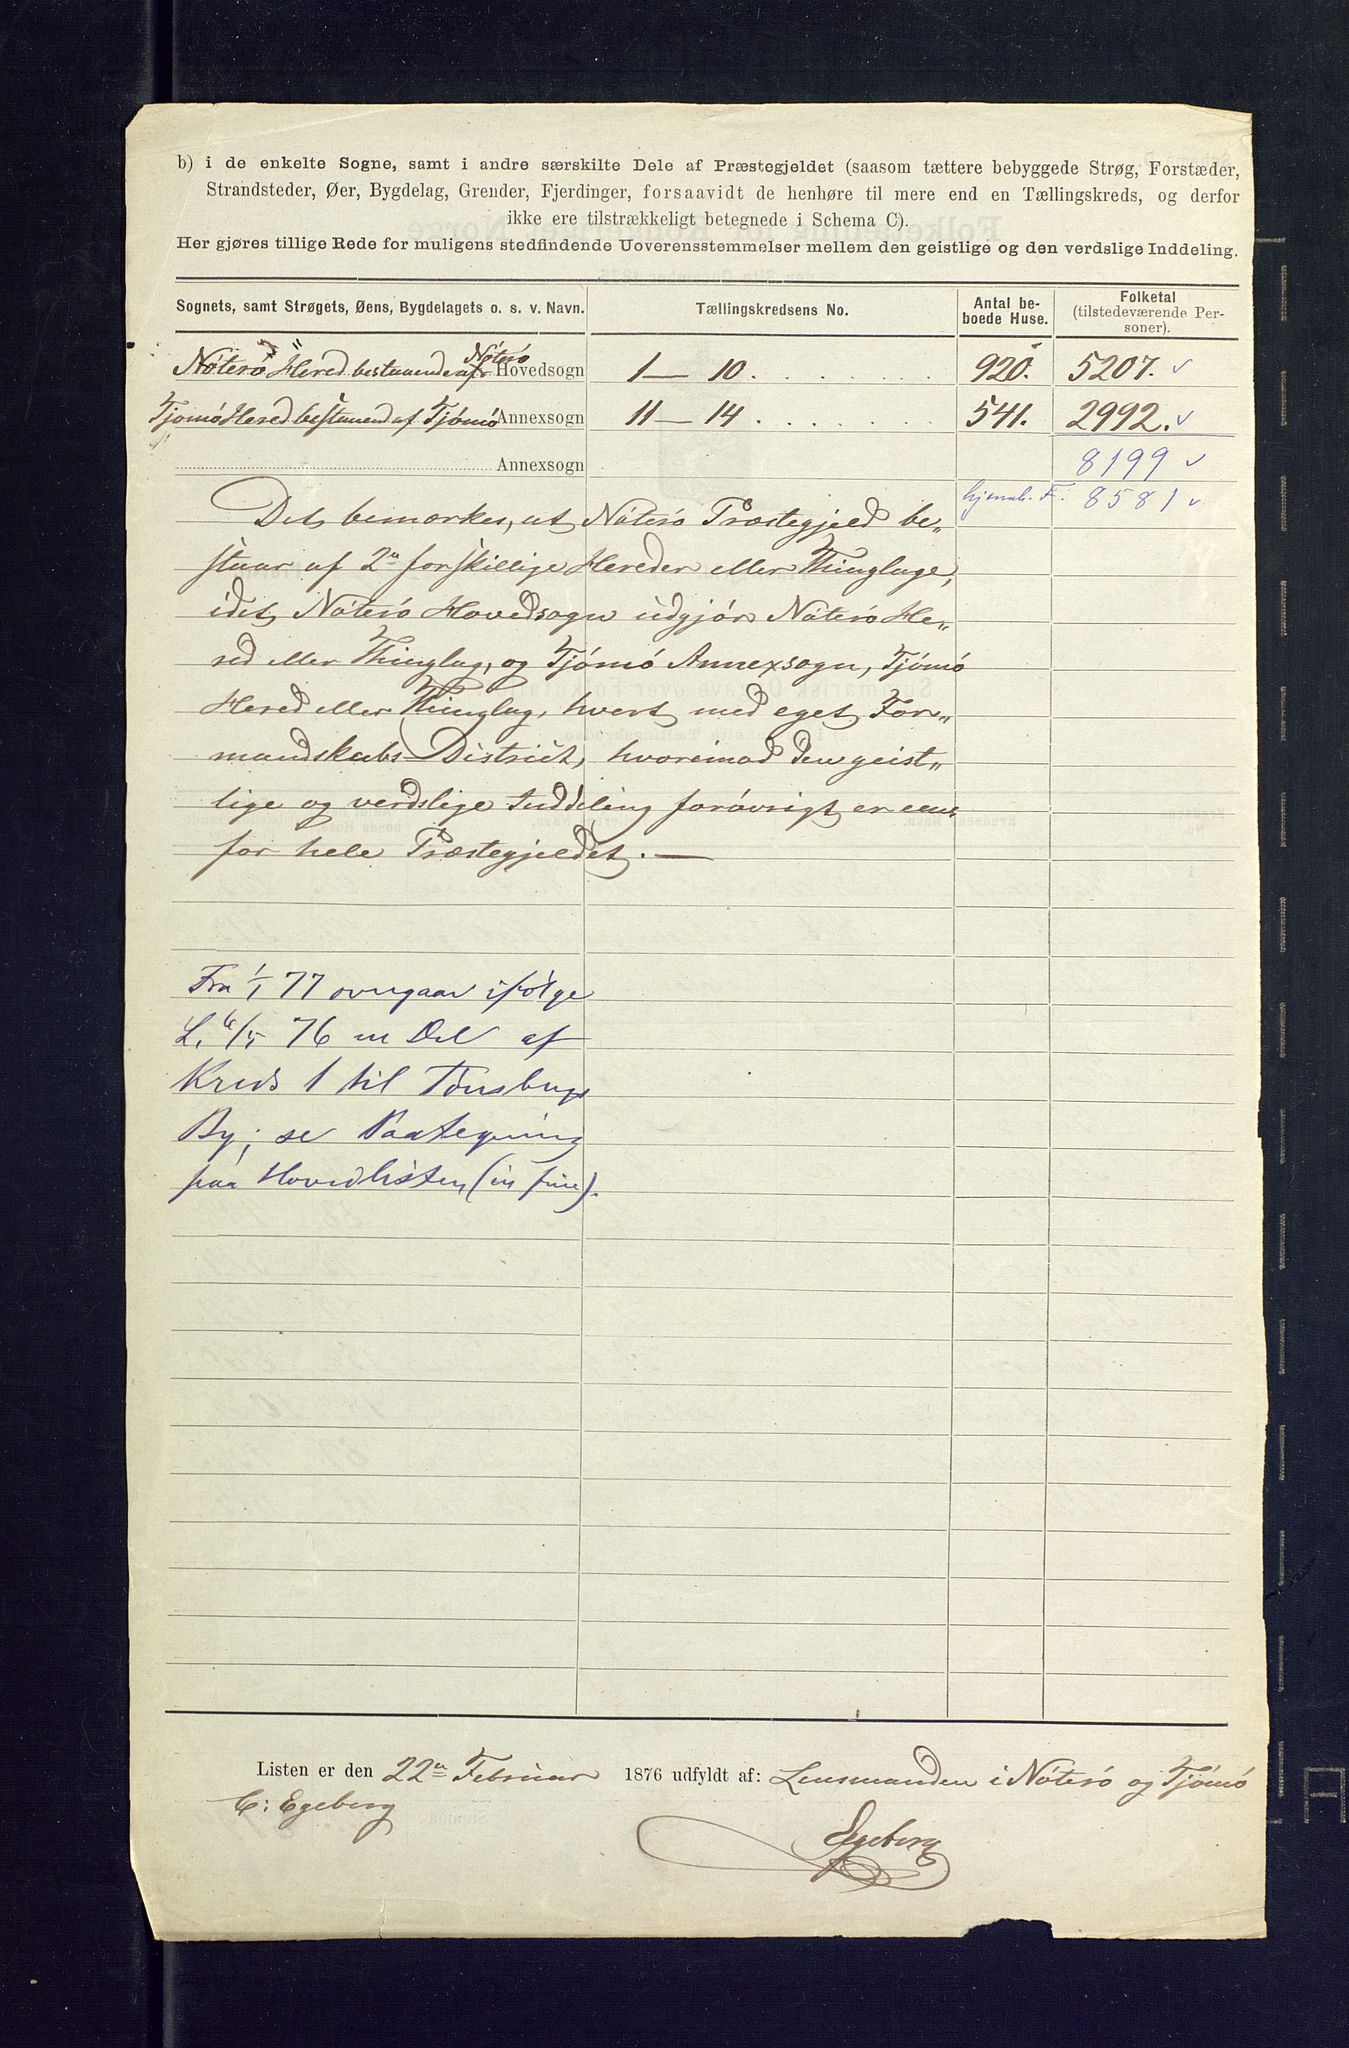 b) i de enkelte Sogne, samt i andre særskilte Dele af Præstegjeldet (saasom tættere bebyggede Strøg, Forstæder,
Strandsteder, Øer, Bygdelag, Grender, Fjerdinger, forsaavidt de henhøre til mere end en Tællingskreds, og derfor
ikke ere tilstrækkeligt betegnede i Schema C).
Her gjøres tillige Rede for muligens stedfindende Uoverensstemmelser mellem den geistlige og den verdslige Inddeling.
Sognets, samt Strøgets, Øens, Bygdelagets o. s. v. Navn. Tællingskredsens No. Antal be-
boede Huse. Folketal
(tilstedeværende Per-
soner).
Nøterø Hered bestaaende af Nøterø Hovedsogn 1 — 10 . . . . . . . . 920. 5207. ✓
Tjømø Hered bestaaend af Tjømø Annexsogn 11 — 14 . . . . . . . . 541. 2992. ✓
Annexsogn 8199 ✓
hjemh. F. 8581 ✓
Det bemærkes, at Nøterø Præstegjeld be„
staar af 2de forskillige Hereder eller Thinglage,
idet Nøterø Hovedsogn udgjør Nøterø He„
red eller Thinglag, og Tjømø Annexsogn, Tjømø
Hered eller Thinglag, hvert med eget For„
mandskabs-District, hvorimod den geist„
lige og verdslige Inddeling forøvrigt er eens
for hele Præstegjeldet. —
Fra 1/1 77 overgaar ifølge
L. 6/5 76 en Del af
Kreds 1 til Tønsbergs
By; se Paategning
paa Hovedlisten (in fine).
Listen er den 22de Februar 1876 udfyldt af: Lensmanden i Nøterø og Tjømø
C: Egeberg
Egeberg